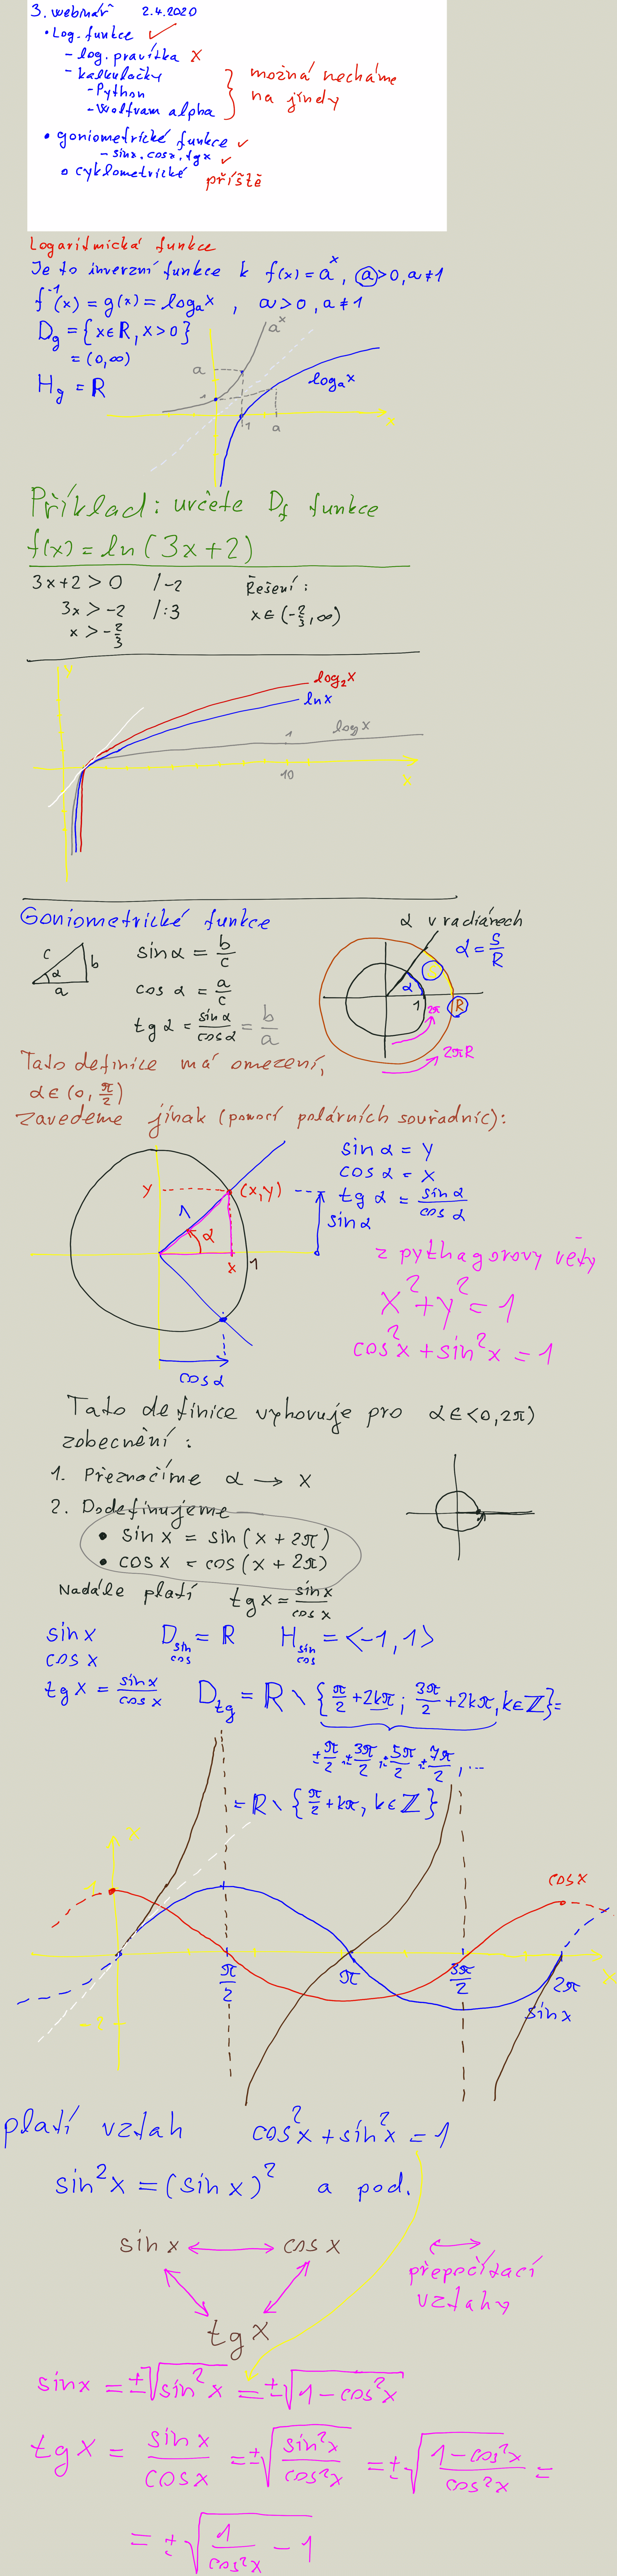 3. webinář 2.4.2020
• Log. funkce ✓
- log. pravítka x
- kalkulačky
- Python
- Wolfram alpha
možná necháme
na jindy
• goniometrické funkce ✓
- sinx, cosx, tgx ✓
o cyklometrické příště
Logaritmická funkce
Je to inverzní funkce k f(x) = a^x, a > 0, a ≠ 1
f^-1(x) = g(x) = log_a x , a > 0, a ≠ 1
D_g = {x ∈ R, x > 0}
= (0, ∞)
H_g = R
a^x
a
1
log_a x
1
a
x
Příklad: určete D_f funkce
f(x) = ln(3x+2)
3x+2 > 0 /-2 Řešení:
3x > -2 /:3 x ∈ (-2/3, ∞)
x > -2/3
y
log_2 x
ln x
log x
1
10
x
Goniometrické funkce
α v radiánech
c
b
α
a
sin α = b/c
cos α = a/c
tg α = sin α/cos α = b/a
α = s/R
α
1
R
2π
2πR
Tato definice má omezení,
α ∈ (0, π/2)
zavedeme jinak (pomocí polárních souřadnic):
sin α = y
cos α = x
tg α = sin α/cos α
y
(x,y)
1
α
sin α
x
1
cos α
z pythagorovy věty
x^2 + y^2 = 1
cos^2 x + sin^2 x = 1
Tato definice vyhovuje pro α ∈ <0, 2π)
zobecnění:
1. Přeznačíme α → x
2. Dodefinujeme
• sin x = sin (x + 2π)
• cos x = cos (x + 2π)
Nadále platí tg x = sin x/cos x
sin x D_sin = R H_sin = <-1, 1>
cos x cos cos
tg x = sin x/cos x D_tg = R \ {π/2 + 2kπ; 3π/2 + 2kπ, k ∈ Z} =
± π/2, ± 3π/2, ± 5π/2, ± 7π/2, ...
= R \ {π/2 + kπ, k ∈ Z}
x
1
cos x
π/2
π
3π/2
2π
x
sin x
-2
platí vztah cos^2 x + sin^2 x = 1
sin^2 x = (sin x)^2 a pod.
sin x ↔ cos x
tg x
↔
přepočítací
vztahy
sin x = ±√(sin^2 x) = ±√(1 - cos^2 x)
tg x = sin x/cos x = ±√(sin^2 x/cos^2 x) = ±√((1 - cos^2 x)/cos^2 x) =
= ±√(1/cos^2 x - 1)